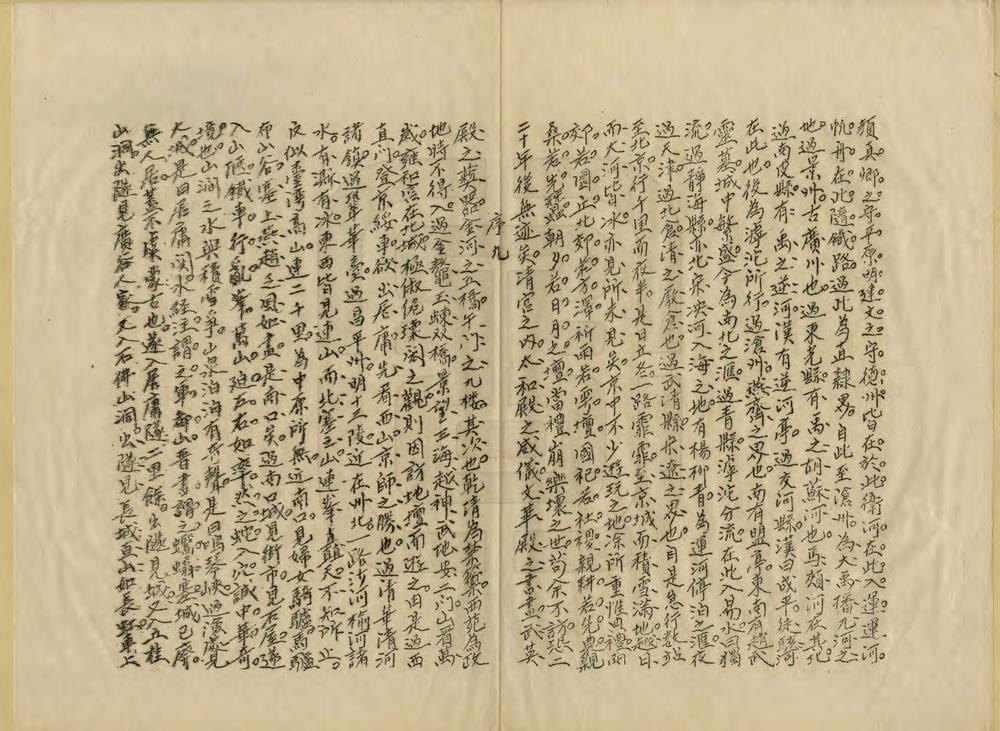 顏真卿之守平原明建文之守德州皆在於此衛河在此入運運河
帆舟在此隨鐵路過此為直隸界自此至滄州為大禹播九河之
地過景州古廣川也過東光縣有禹之胡蘇河也馬頰河在其北
過南皮縣有禹之逆河漢有逆河亭過交河縣漢曰成平徒駭河
在此也後為滹沱所行過滄州燕齊之界也南有盟亭東南有趙武
靈墓城中繁盛今為南北之滙過青縣滹沱分流在此入易水曰獨
流過靜海縣亦北宋決河入海之地有楊柳青為運河停泊之滙夜
過天津過北倉清之廠倉也過武清縣宋遼之界也自是急行數站
至北京行千里而夜半是日立冬一路霏霏至京城而積雪滿地越日
而大河皆冰亦見所未見矣京中不少遊玩之地余所重惟典禮南
郊若圜丘北郊若方澤祈雨若雩壇國祀若社稷親耕若先農親
桑若先蠶朝夕若日月之壇當禮崩樂壞之世苟余不訪恐二
二十年後無迹矣清宮之內太和殿之威儀文華殿之書畫武英
序九
殿之藝器金河之五橋午門之九樓其次也乾清為禁籞西苑為政
地時不得入過金鰲玉蝀双橋景望三海越神武地安二門山看萬
歲雍和宮在北城極俶傥瓌閎之觀則因訪地壇而遊之由是過西
直門登京綏車欲出居庸先看西山京師之勝也過清華清河
諸鎮過華臺過昌平州明十三陵近在州北一路沙河榆河諸
水有瀨有冰東西皆見連山而北塞之山連拳直矗天不知所止
夜似臺灣高山連二千里為中原所無近南口見婦女騎驢馬驢
布山谷塞上燕趙之風如畫是南口矣過南口城見街市見石屋遂
入山低鐵車行亂峯萬山迫左右如率然之蛇入沱誠中華奇
境也山澗之水與積雪爭山泉泊泊有琴聲是曰鳴琴峽過深溝見
大城是曰居庸關水經注謂之軍都山晉書謂之蠮螉塞城已廢
無人居蓋不虞蒙古也遂入居庸隧二里餘出隧見城又入五桂
山洞出隧見廣谷人寥又入石佛山洞出隧見長城亘山如長虹車上